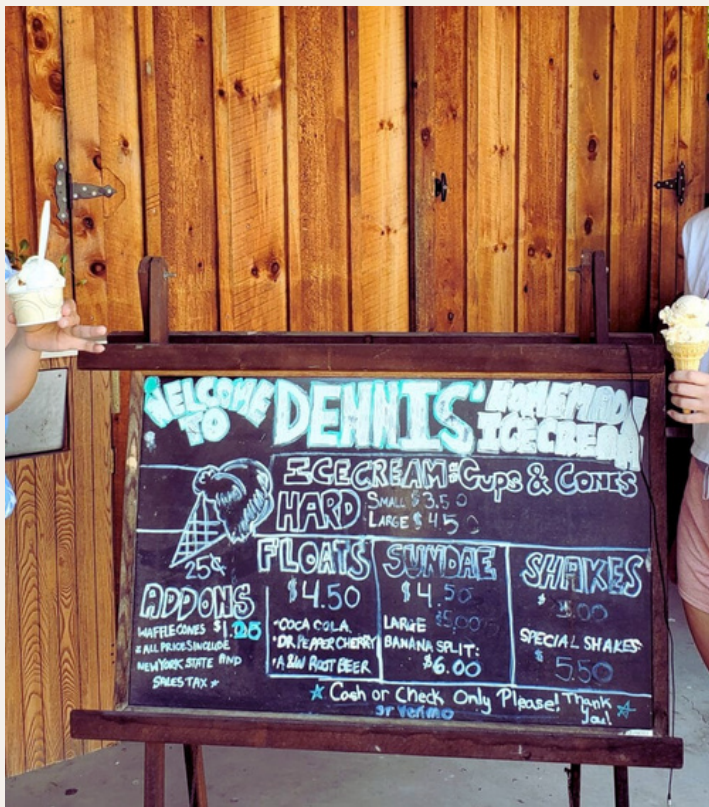 WELCOME TO DENNIS' HOMEMADE ICE CREAM
ICE CREAM Cups & CONES
HARD
SMALL $3.50
LARGE $4.50
25¢
ADDONS
WAFFLE CONES $1.
ALL PRICES INCLUDE
NEW YORK STATE AND
SALES TAX
FLOATS
$4.50
COCA COLA
DR PEPPER CHERRY
A&W ROOT BEER
SUNDAE
$4.50
LARGE $5.00
BANANA SPLIT:
$6.00
SHAKES
SPECIAL SHAKES:
$5.50
Cash or Check Only Please! Thank You!
or Venmo